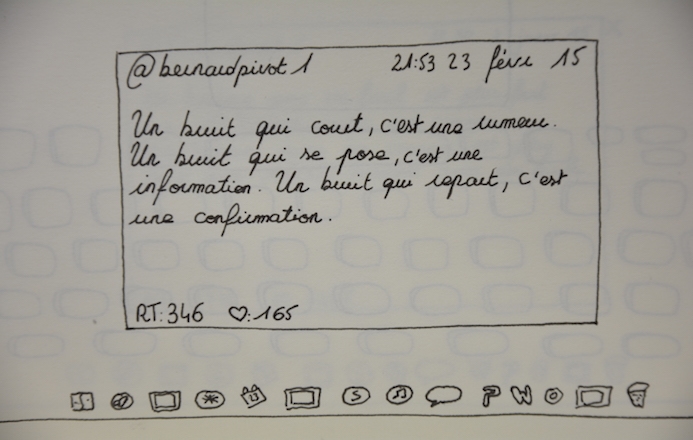 @bernardpivot1 21:53 23 févr 15
Un bruit qui court, c'est une rumeur.
Un bruit qui se pose, c'est une
information. Un bruit qui repart, c'est
une confirmation.
RT: 346 ♡: 165
13 S P W